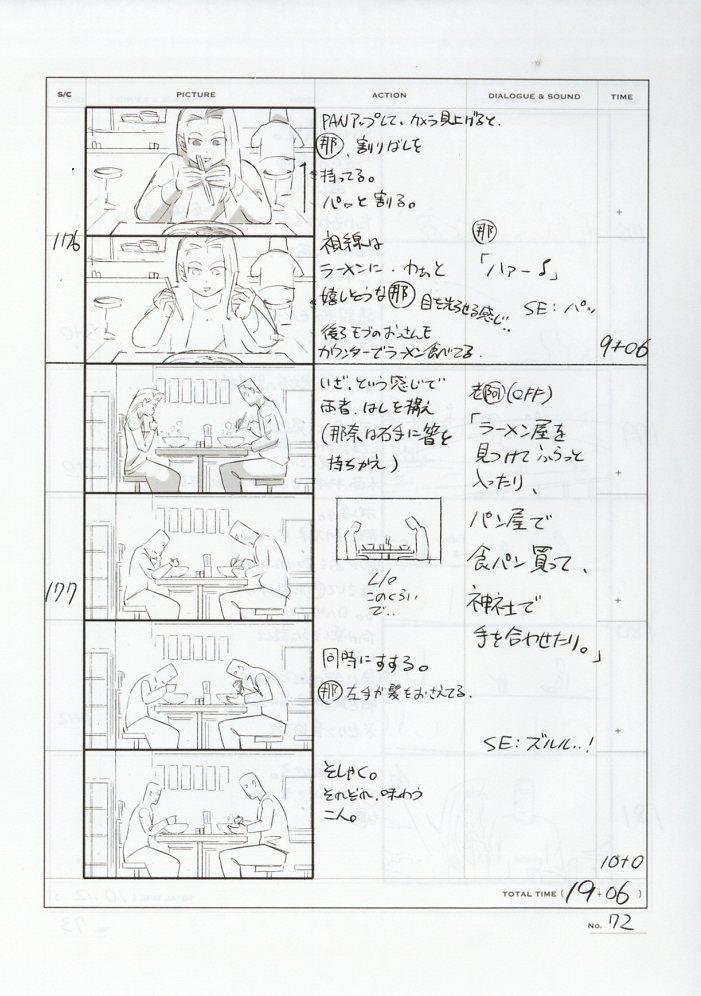 S/C PICTURE ACTION DIALOGUE & SOUND TIME
176
PANアップして、カメラ見上げると、
那、割りばしを
持ってる。
パッと割る。
視線は
ラーメンに・わぁっと
嬉しそうな那 目を光らせる感じ‥
後ろモブのおっさんも
カウンターでラーメン食べてる.
那
「ハァー♪」
SE:パッ
9+06
177
いざ、という感じで
両者、はしを構え
(那奈は右手に箸を
持ちかえ)
L/O
このくらい
で‥
同時にすする。
那 左手が髪をおさえてる.
そしゃく。
それぞれ、味わう
二人。
老阿(OFF)
「ラーメン屋を
見つけてふらっと
入ったり、
パン屋で
食パン買って、
神社で
手を合わせたり。」
SE:ズルル‥!
10+0
TOTAL TIME (19+06)
No. 72